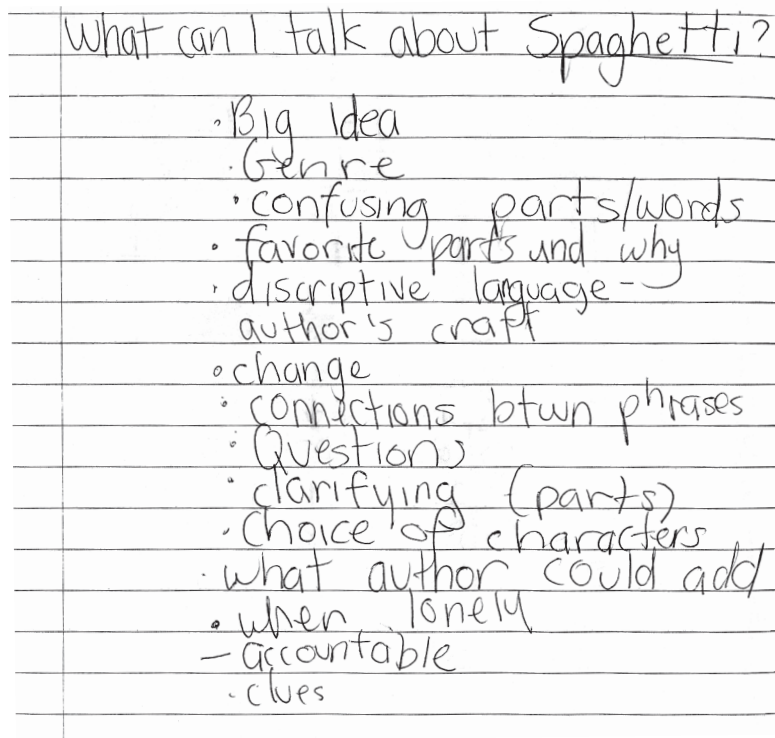 What can I talk about Spaghetti?
· Big Idea
· Genre
· confusing parts/words
· favorite parts and why
· discriptive language -
author's craft
· change
· connections btwn phrases
· Questions
· clarifying (parts)
· Choice of characters
· what author could add
· when lonely
- accountable
· clues